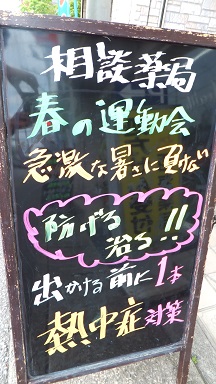 相談薬局
春の運動会
急激な暑さに負けない
防げる
治る!!
出かける前に1本
熱中症対策